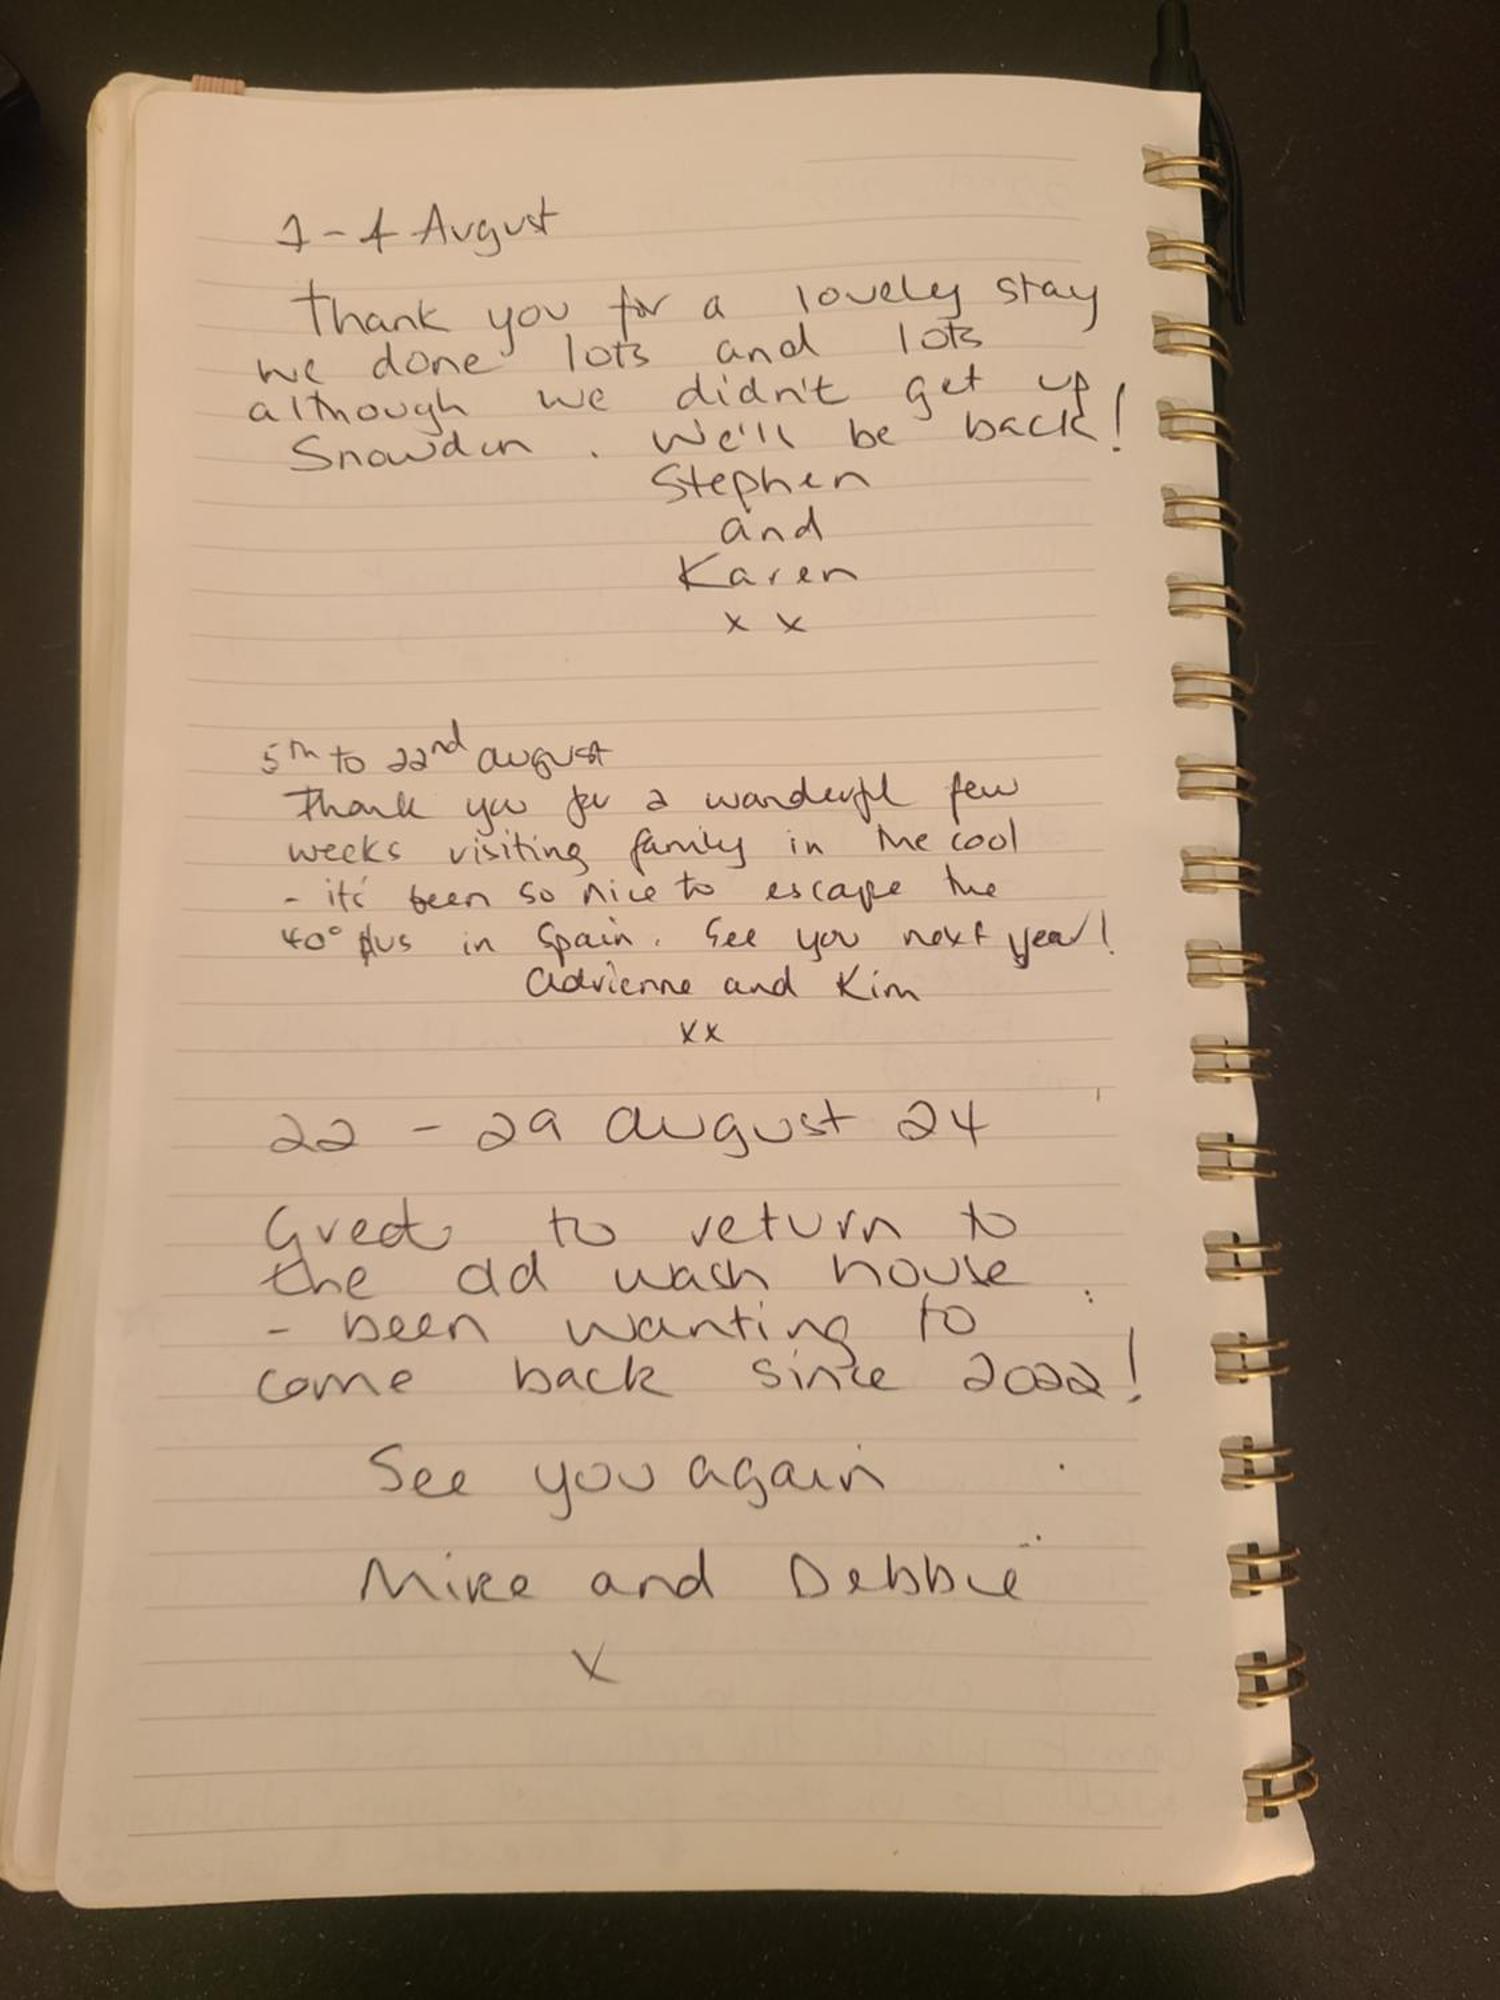 1 - 4 August
Thank you for a lovely stay
we done lots and lots
although we didn't get up
Snowdon. We'll be back!
Stephen
and
Karen
x x
5th to 22nd august
Thank you for a wonderful few
weeks visiting family in the cool
- it's been so nice to escape the
40° plus in Spain. See you next year!
Adrienne and Kim
xx
22 - 29 august 24
Great to return to
the old wash house
- been wanting to
come back since 2022!
See you again
Mike and Debbie
x